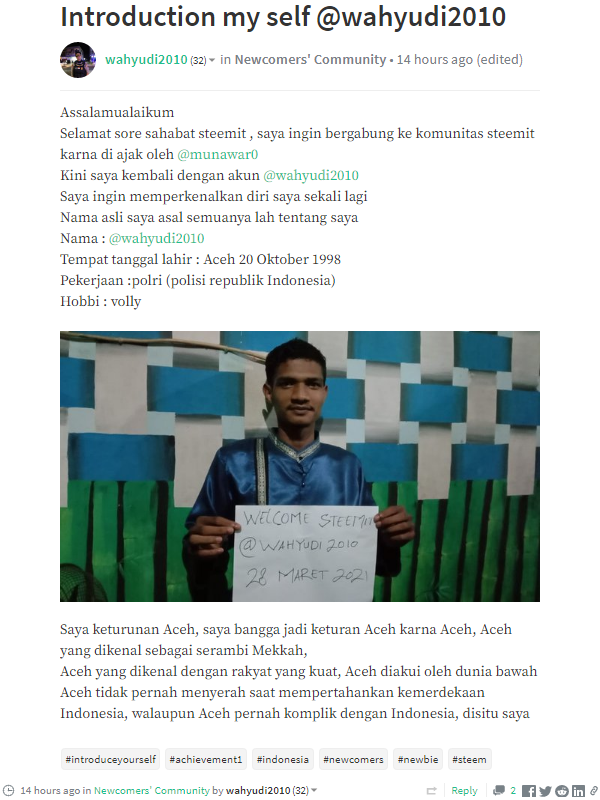 Introduction my self @wahyudi2010
wahyudi2010 (32) in Newcomers' Community • 14 hours ago (edited)
Assalamualaikum
Selamat sore sahabat steemit , saya ingin bergabung ke komunitas steemit
karna di ajak oleh @munawar0
Kini saya kembali dengan akun @wahyudi2010
Saya ingin memperkenalkan diri saya sekali lagi
Nama asli saya asal semuanya lah tentang saya
Nama : @wahyudi2010
Tempat tanggal lahir : Aceh 20 Oktober 1998
Pekerjaan :polri (polisi republik Indonesia)
Hobbi : volly
WELCOME STEEMIT
@WAHYUDI 2010
28 MARET 2021
Saya keturunan Aceh, saya bangga jadi keturan Aceh karna Aceh, Aceh
yang dikenal sebagai serambi Mekkah,
Aceh yang dikenal dengan rakyat yang kuat, Aceh diakui oleh dunia bawah
Aceh tidak pernah menyerah saat mempertahankan kemerdekaan
Indonesia, walaupun Aceh pernah komplik dengan Indonesia, disitu saya
#introduceyourself #achievement1 #indonesia #newcomers #newbie #steem
14 hours ago in Newcomers' Community by wahyudi2010 (32) Reply 2